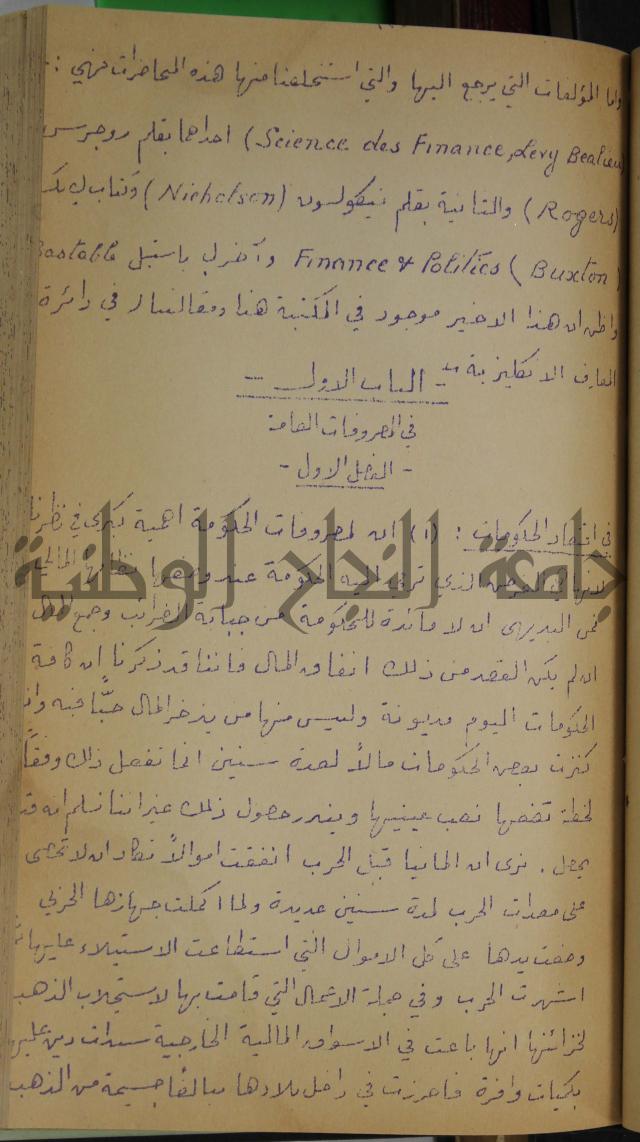 واما المؤلفات التي يرجع اليها والتي استخلصنا منها هذه المحاضرات فهي :-
(Science des Finance, Levy Bealieu) احداهما بقلم روجرس
(Rogers) والثانية بقلم نيكولسون (Nicholson) وكتاب
(Buxton) Finance & Politics وآخر ل باستبل Bastable
واظن ان هذا الاخير موجود في المكتبة هنا ومقالتنا في دائرة
المعارف الانكليزية
- الباب الاول -
في المصروفات العامة
- الفصل الاول -
في اقتصاد الحكومات : (١) ان لمصروفات الحكومة اهمية كبرى في نظرنا
لانها هي الغرض الذي ترمي اليه الحكومة عند وضعها نظامها المالي
فمن البديهي ان لا فائدة للحكومة من جباية الضرائب وجمع المال
ان لم يكن القصد من ذلك انفاق المال فاننا قد ذكرنا ان كافة
الحكومات اليوم مديونة وليس منها من يذخر المال حبًّا فيه وان
كنزت بعض الحكومات مالاً لعدة سنين انما تفعل ذلك وفقاً
لخطة تضعها نصب عينيها ويندر حصول ذلك غير اننا نسلم انه قد
يحصل . نرى ان المانيا قبل الحرب انفقت اموالاً تكاد ان لا تحصى
على معدات الحرب لمدة سنين عديدة ولما اكملت جهازها الحربي
وضعت يدها على كل الاموال التي استطاعت الاستيلاء عليها ثم
اشهرت الحرب وفي جملة الاعمال التي قامت بها لاستجلاب الذهب
لخزائنها انها باعت في الاسواق المالية الخارجية سندات دين عليها
بكميات وافرة فاحرزت في داخل بلادها مبالغا جسيمة من الذهب
جامعة النجاح الوطنية